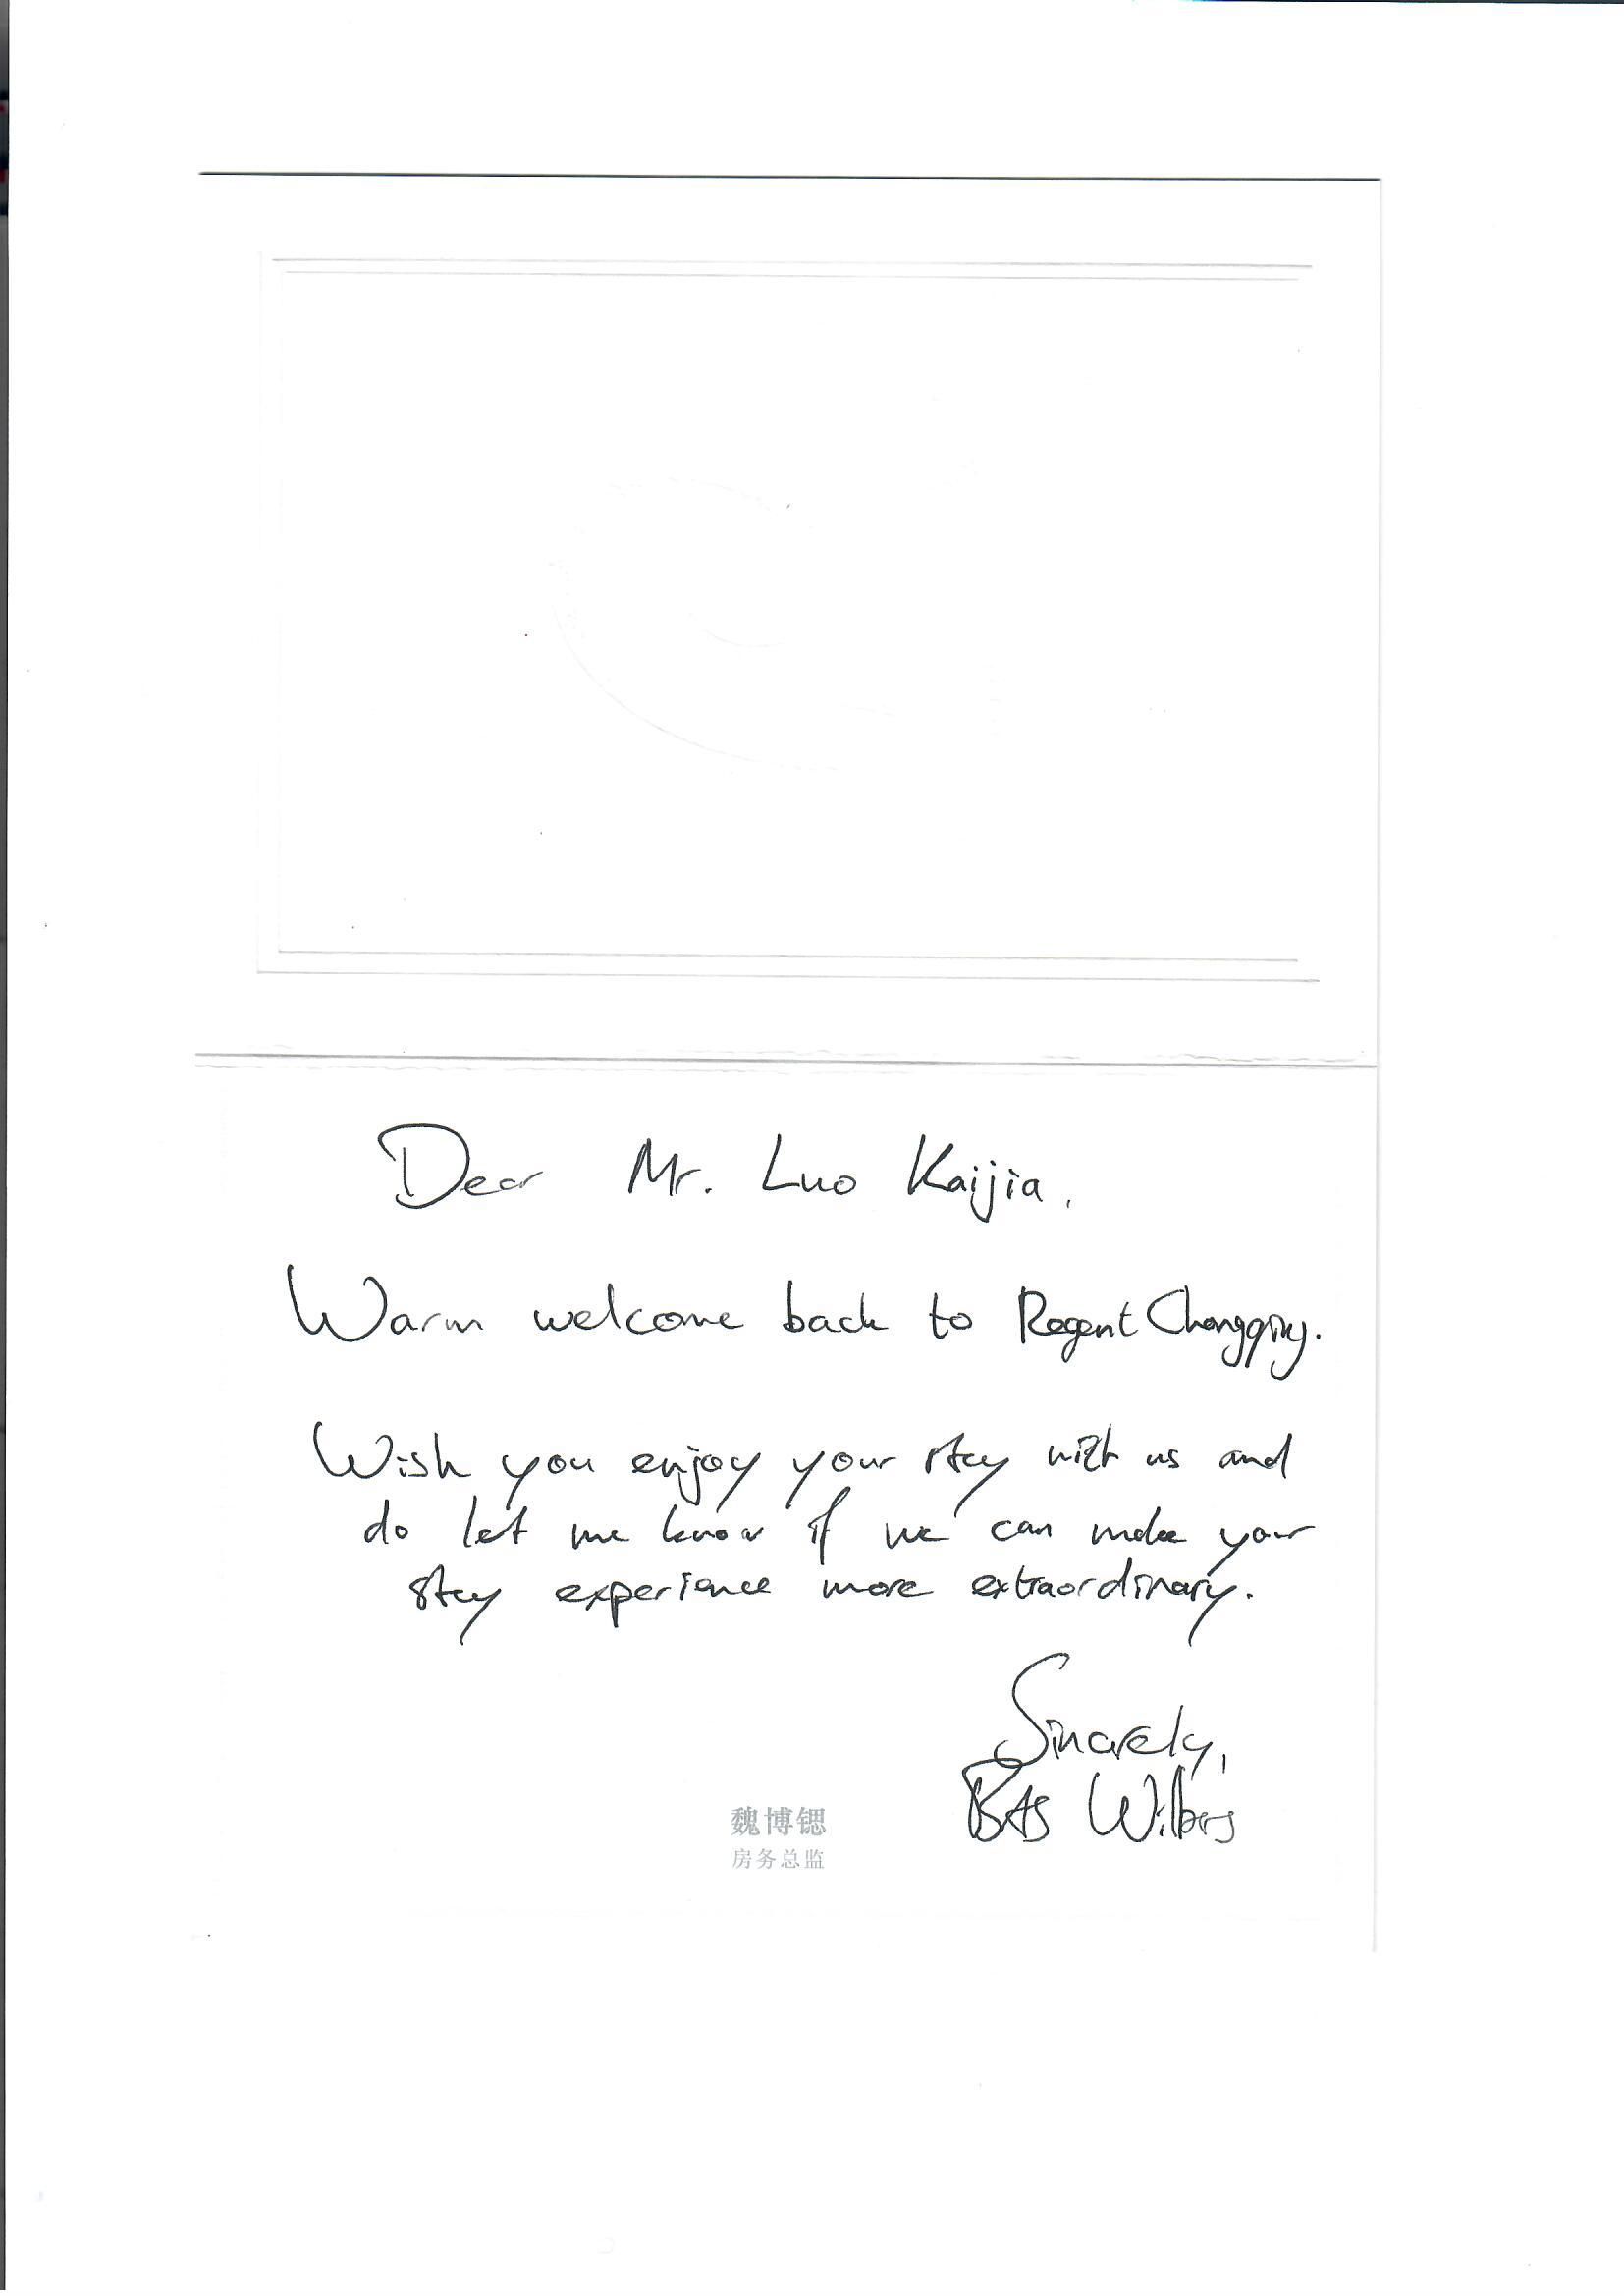 Dear Mr. Luo Kaijia,
Warm welcome back to Regent Chongqing.
Wish you enjoy your stay with us and
do let me know if we can make your
stay experience more extraordinary.
Sincerely,
BAS Wilbers
魏博锶
房务总监